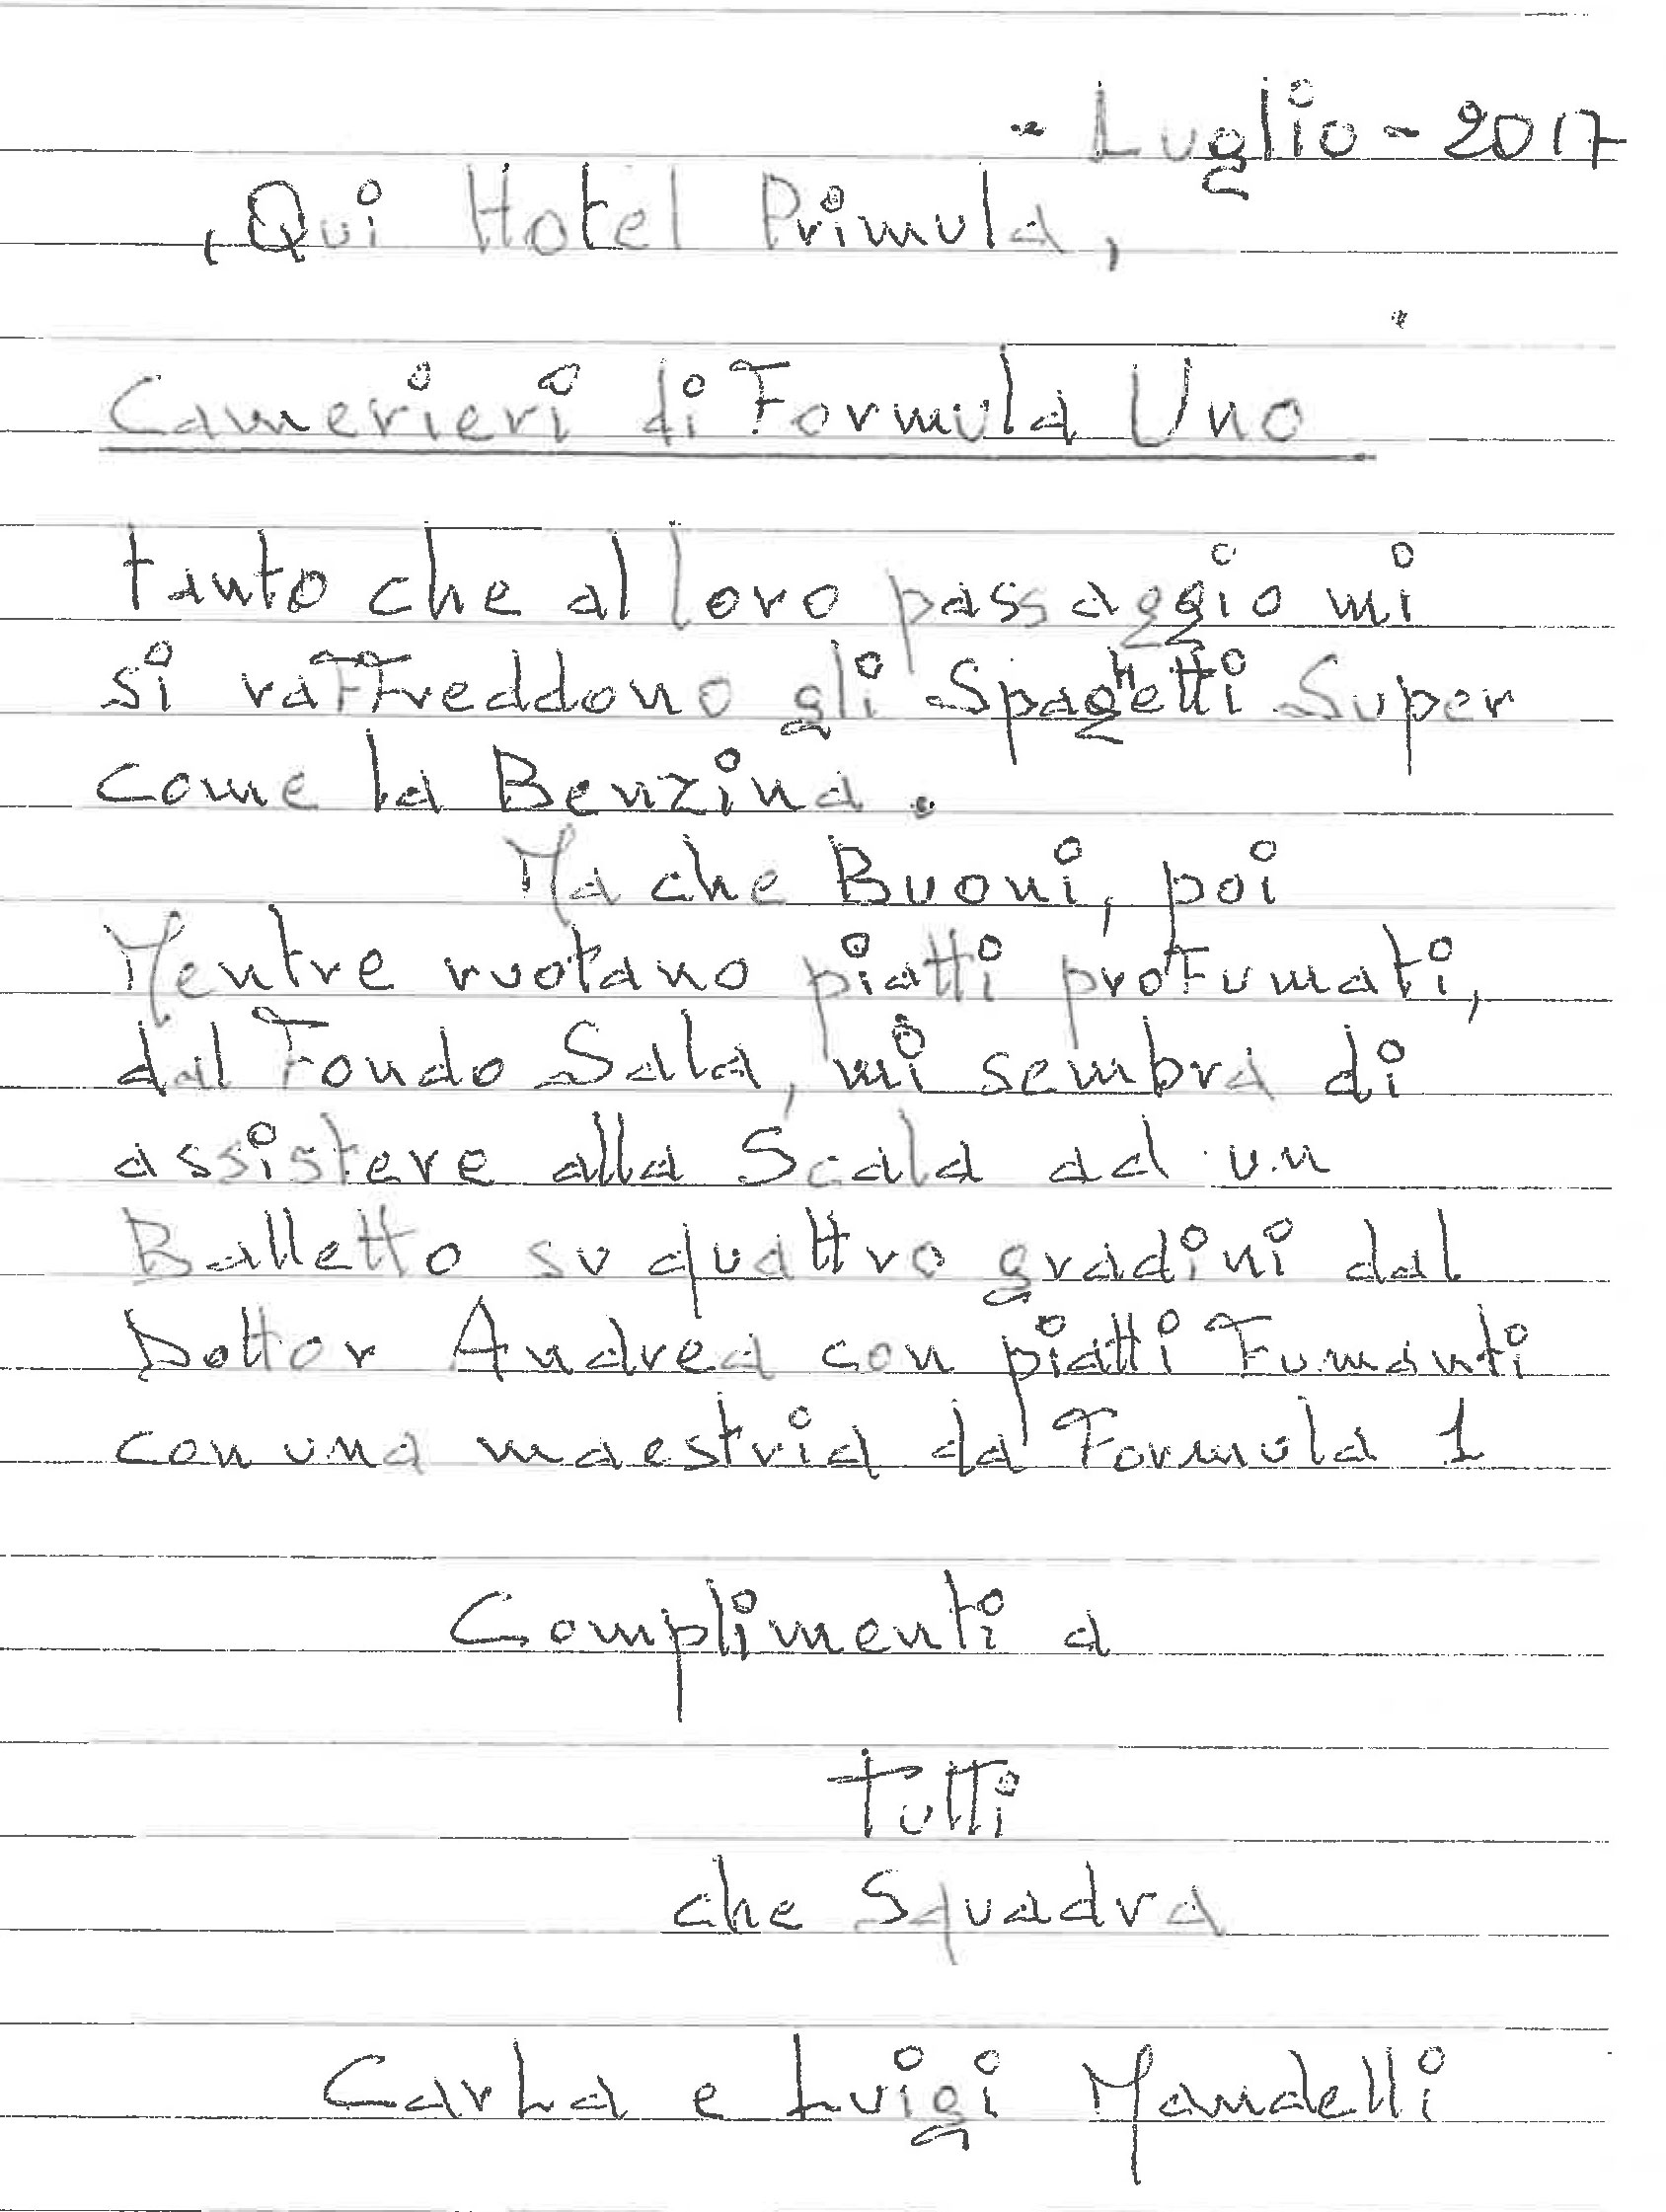 - Luglio - 2017
, Qui Hotel Primula,
Camerieri di Formula Uno
tanto che al loro passaggio mi
si raffreddono gli Spaghetti Super
come la Benzina.
Ma che Buoni, poi
Mentre ruotano piatti profumati,
dal Fondo Sala, mi sembra di
assistere alla Scala ad un
Balletto su quattro gradini dal
Dottor Andrea con piatti Fumanti
con una maestria da Formula 1
Complimenti a
tutti
che Squadra
Carla e Luigi Mandelli